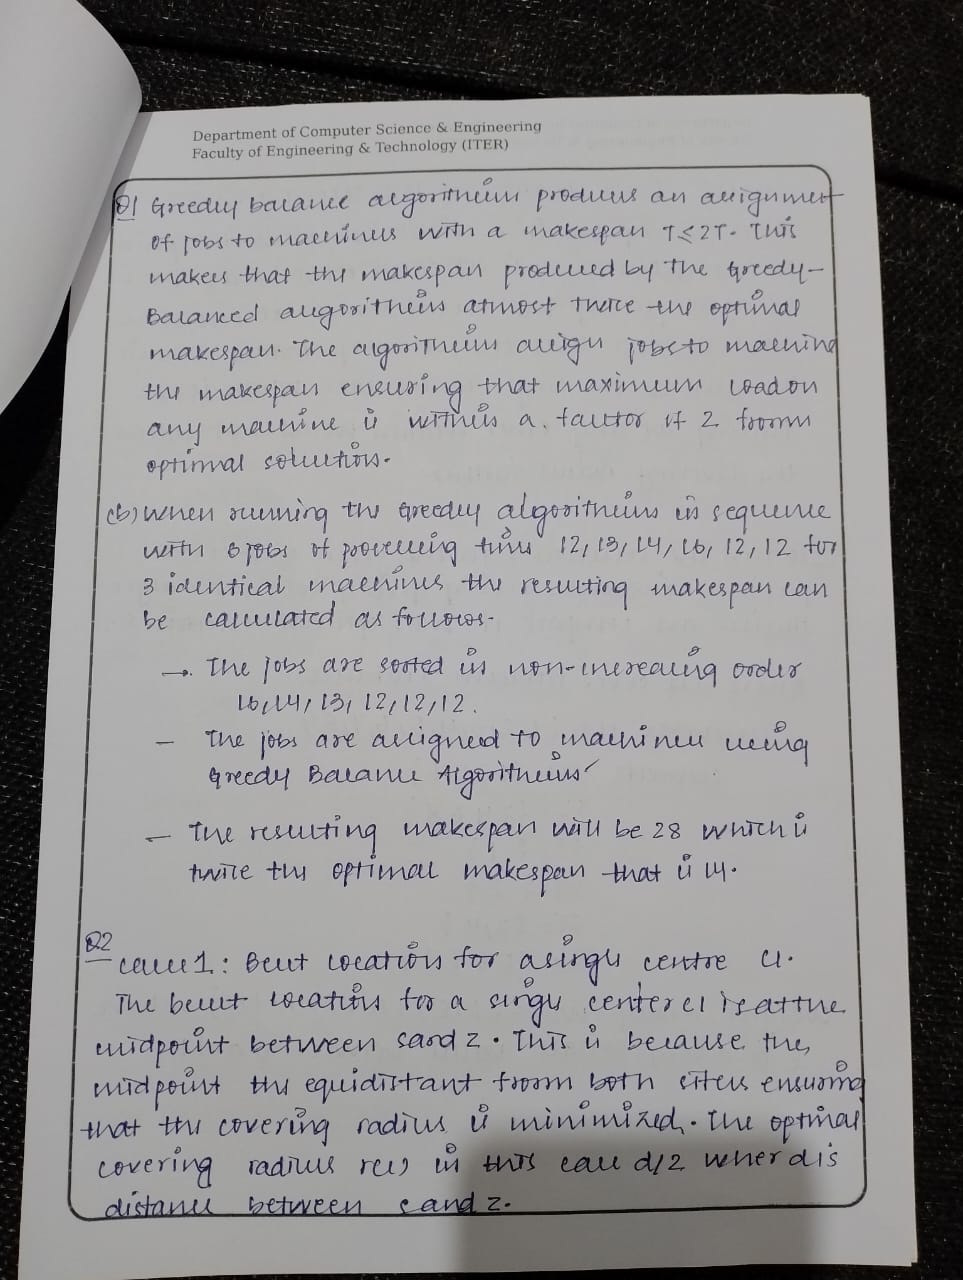 Department of Computer Science & Engineering
Faculty of Engineering & Technology (ITER)
Q1 Greedy balance algorithm produces an assignment
of jobs to machines with a makespan T ≤ 2T. This
makes that the makespan produced by the Greedy-
Balanced algorithms atmost the optimal
makespan. The algorithm assign jobs to machine
the makespan ensuring that maximum load on
any machine is within a factor of 2 from
optimal solution.
(b) When running the Greedy algorithms in sequence
with 6 jobs of processing time 12, 13, 14, 16, 12, 12 for
3 identical machines the resulting makespan can
be calculated as follows-
→. The jobs are sorted in non-increasing order
16, 14, 13, 12, 12, 12.
- The jobs are assigned to machines using
Greedy Balance Algorithms
- The resulting makespan will be 28 which is
twice the optimal makespan that is 14.
Q2
Case 1: Best location for a single centre c1.
The best location for a single center c1 is at the
midpoint between s and z. This is because the
midpoint the equidistant from both sites ensuring
that the covering radius is minimized. The optimal
covering radius r(c1) in this case d/2 where d is
distance between s and z.